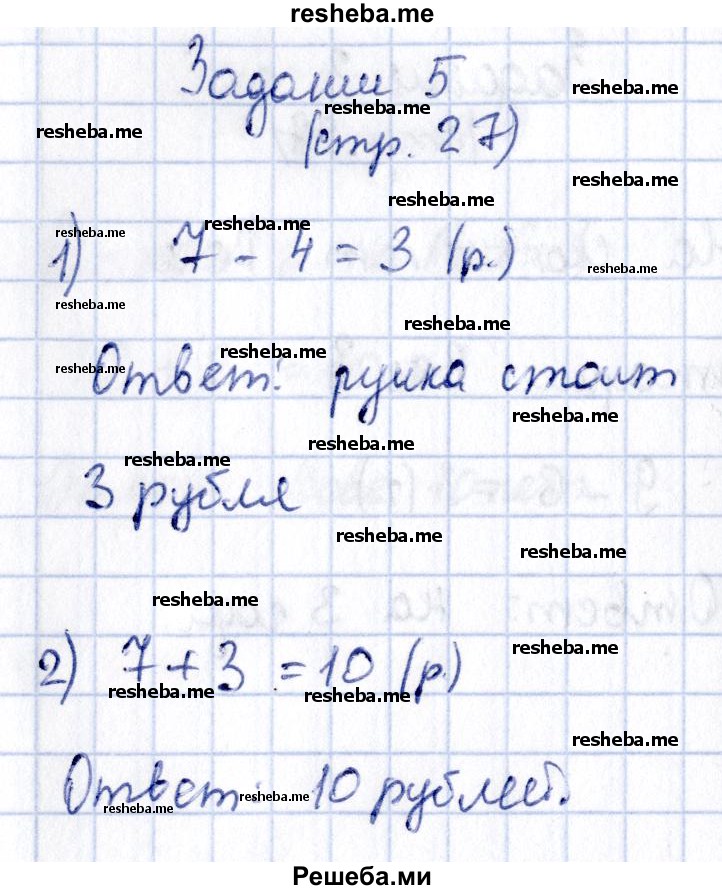 resheba.me
Задании 5
resheba.me
resheba.me
resheba.me
(стр. 27)
resheba.me
resheba.me
resheba.me
resheba.me
1) 7 - 4 = 3 (р.)
resheba.me
resheba.me
resheba.me
resheba.me
resheba.me
Ответ: ручка стоит
resheba.me
resheba.me
resheba.me
3 рубля
resheba.me
resheba.me
resheba.me
resheba.me
2) 7 + 3 = 10 (р.)
resheba.me
resheba.me
resheba.me
Ответ: 10 рублей.
resheba.me
resheba.me
Решеба.ми